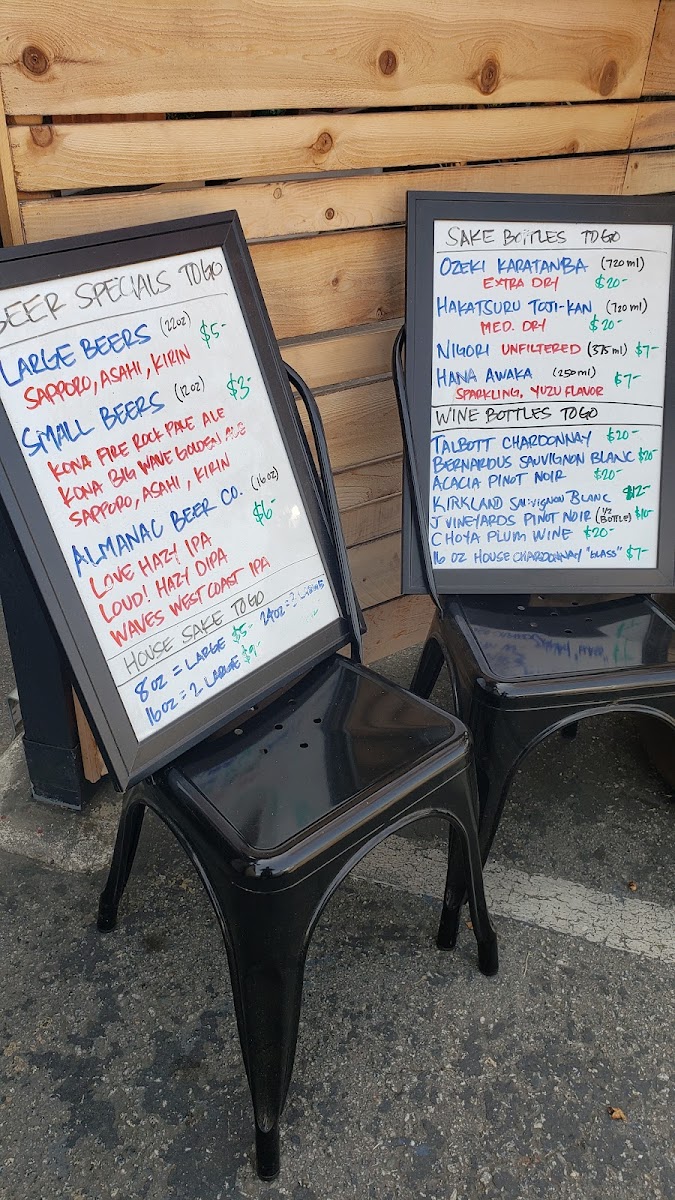 BEER SPECIALS TOGO
LARGE BEERS (22oz) $5-
SAPPORO, ASAHI, KIRIN
SMALL BEERS (12oz) $3-
KONA FIRE ROCK PALE ALE
KONA BIG WAVE GOLDEN ALE
SAPPORO, ASAHI, KIRIN
ALMANAC BEER CO. (16oz) $6-
LOVE HAZY IPA
LOUD! HAZY DIPA
WAVES WEST COAST IPA
HOUSE SAKE TO GO
8oz = LARGE $5- 24oz = 3
16oz = 2 LARGE $9-
SAKE BOTTLES TOGO
OZEKI KARATANBA (720ml)
EXTRA DRY $20-
HAKATSURU TOJI-KAN (720ml)
MED. DRY $20-
NIGORI UNFILTERED (375ml) $7-
HANA AWAKA (250ml)
SPARKLING, YUZU FLAVOR $7-
WINE BOTTLES TOGO
TALBOTT CHARDONNAY $20-
BERNARDUS SAUVIGNON BLANC $20-
ACACIA PINOT NOIR $20-
KIRKLAND SAUVIGNON BLANC $12-
J VINEYARDS PINOT NOIR (1/2 BOTTLE) $10-
CHOYA PLUM WINE $20-
16 OZ HOUSE CHARDONNAY "GLASS" $7-